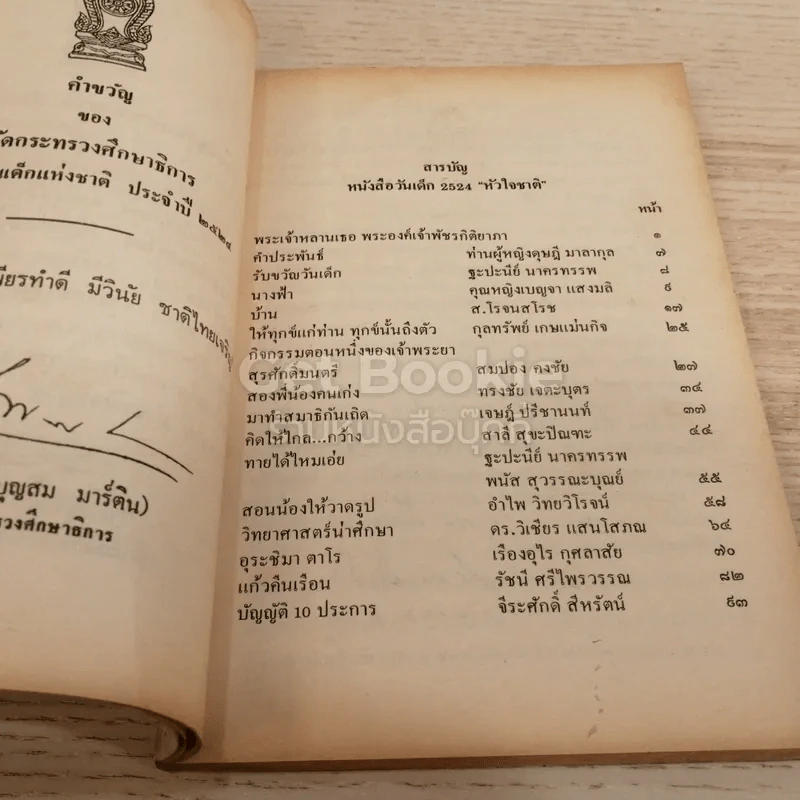 คำขวัญ
ของ
ดกระทรวงศึกษาธิการ
เด็กแห่งชาติ ประจำปี ๒๕๒๔
เพียรทำดี มีวินัย ชาติไทยเจริญ
บุญสม มาร์ติน)
รวงศึกษาธิการ
สารบัญ
หนังสือวันเด็ก 2524 "หัวใจชาติ"
หน้า
พระเจ้าหลานเธอ พระองค์เจ้าพัชรกิติยาภา ๑
คำประพันธ์ ท่านผู้หญิงดุษฎี มาลากุล ๗
รับขวัญวันเด็ก ฐะปะนีย์ นาครทรรพ ๘
นางฟ้า คุณหญิงเบญจา แสงมลิ ๙
บ้าน ส.โรจนสโรช ๑๗
ให้ทุกข์แก่ท่าน ทุกข์นั้นถึงตัว กุลทรัพย์ เกษแม่นกิจ ๒๕
กิจกรรมตอนหนึ่งของเจ้าพระยา
สุรศักดิ์มนตรี สมปอง คงชัย ๒๗
สองพี่น้องคนเก่ง ทรงชัย เจตะบุตร ๓๔
มาทำสมาธิกันเถิด เจษฎ์ ปรีชานนท์ ๓๗
คิดให้ไกล...กว้าง สาลี่ สุขะปิณฑะ ๔๔
ทายได้ไหมเอ่ย ฐะปะนีย์ นาครทรรพ
พนัส สุวรรณะบุณย์ ๕๕
สอนน้องให้วาดรูป อำไพ วิทยวิโรจน์ ๕๘
วิทยาศาสตร์น่าศึกษา ดร.วิเชียร แสนโสภณ ๖๔
อุระชิมา ตาโร เรืองอุไร กุศลาสัย ๗๐
แก้วคืนเรือน รัชนี ศรีไพรวรรณ ๘๒
บัญญัติ 10 ประการ จีระศักดิ์ สีหรัตน์ ๙๓
Get Bookie
ร้านหนังสือบุ๊คกี้